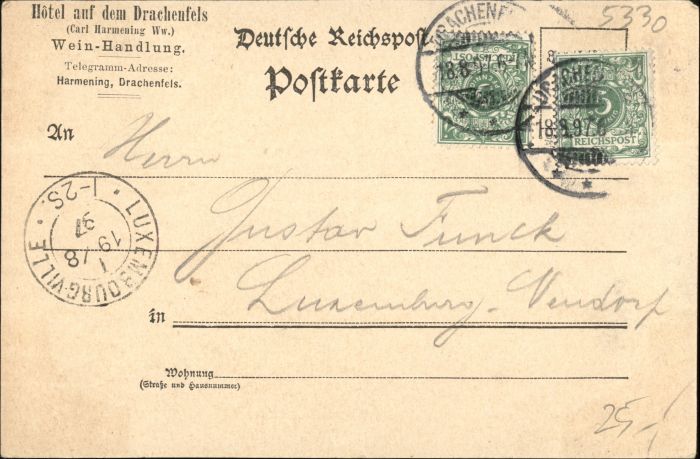 Hôtel auf dem Drachenfels
(Carl Harmening Ww.)
Wein-Handlung.
Telegramm-Adresse:
Harmening, Drachenfels.
5330
Deutsche Reichspost
Postkarte
DRACHENF
18.8.97.6-7N
DRACHENF
18.8.97.6
5
REICHSPOST
An
Herrn
Gustav Funck
in
Luxemburg-
LUXEMBOURG-VILLE
1-2S
19 / 8
97
Wohnung
(Straße und Hausnummer)
25,-